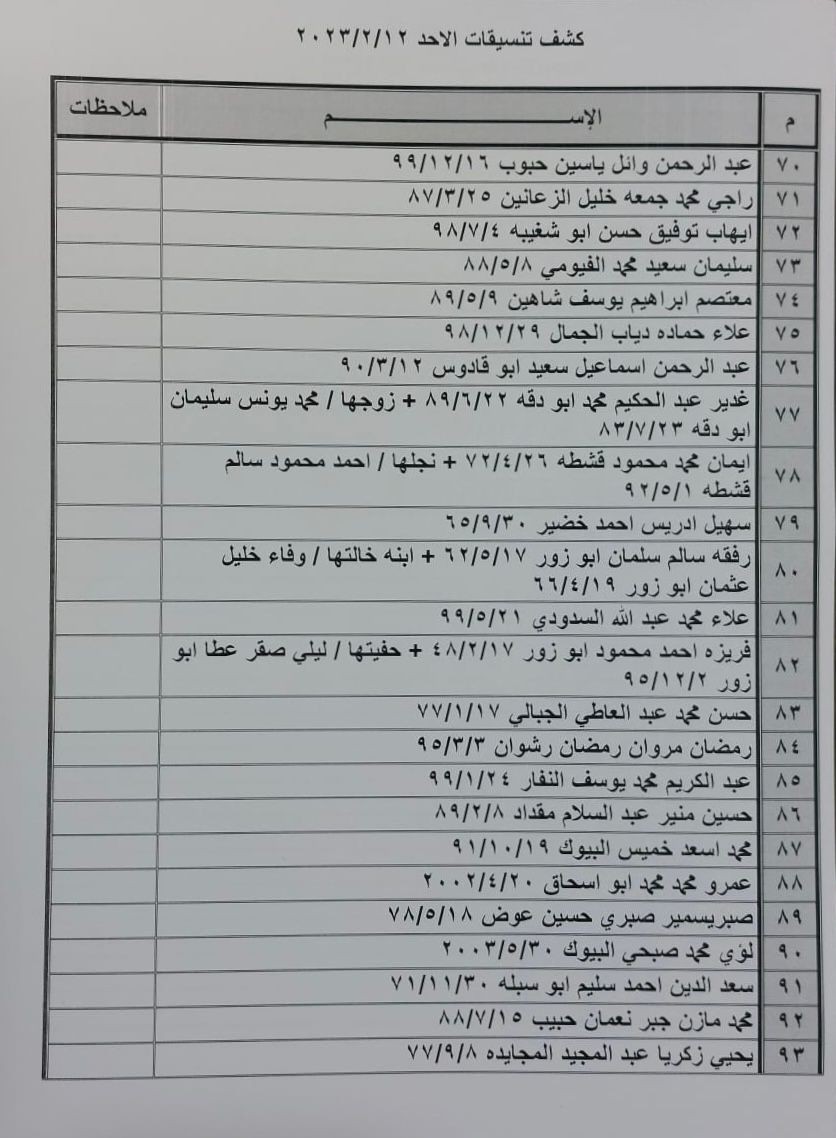 كشف تنسيقات الاحد ٢٠٢٣/٢/١٢
م الإســـــــــــــــــــــــم ملاحظات
٧٠ عبد الرحمن وائل ياسين حبوب ٩٩/١٢/١٦
٧١ راجي محمد جمعه خليل الزعانين ٨٧/٣/٢٥
٧٢ ايهاب توفيق حسن ابو شغيبه ٩٨/٧/٤
٧٣ سليمان سعيد محمد الفيومي ٨٨/٥/٨
٧٤ معتصم ابراهيم يوسف شاهين ٨٩/٥/٩
٧٥ علاء حماده دياب الجمال ٩٨/١٢/٢٩
٧٦ عبد الرحمن اسماعيل سعيد ابو قادوس ٩٠/٣/١٢
٧٧ غدير عبد الحكيم محمد ابو دقه ٨٩/٦/٢٢ + زوجها / محمد يونس سليمان
ابو دقه ٨٣/٧/٢٣
٧٨ ايمان محمد محمود قشطه ٧٢/٤/٢٦ + نجلها / احمد محمود سالم
قشطه ٩٢/٥/١
٧٩ سهيل ادريس احمد خضير ٦٥/٩/٣٠
٨٠ رفقه سالم سلمان ابو زور ٦٢/٥/١٧ + ابنه خالتها / وفاء خليل
عثمان ابو زور ٦٦/٤/١٩
٨١ علاء محمد عبد الله السدودي ٩٩/٥/٢١
٨٢ فريزه احمد محمود ابو زور ٤٨/٢/١٧ + حفيتها / ليلي صقر عطا ابو
زور ٩٥/١٢/٢
٨٣ حسن محمد عبد العاطي الجبالي ٧٧/١/١٧
٨٤ رمضان مروان رمضان رشوان ٩٥/٣/٣
٨٥ عبد الكريم محمد يوسف النفار ٩٩/١/٢٤
٨٦ حسين منير عبد السلام مقداد ٨٩/٢/٨
٨٧ محمد اسعد خميس البيوك ٩١/١٠/١٩
٨٨ عمرو محمد محمد ابو اسحاق ٢٠٠٢/٤/٢٠
٨٩ صبريسمير صبري حسين عوض ٧٨/٥/١٨
٩٠ لؤي محمد صبحي البيوك ٢٠٠٣/٥/٣٠
٩١ سعد الدين احمد سليم ابو سبله ٧١/١١/٣٠
٩٢ محمد مازن جبر نعمان حبيب ٨٨/٧/١٥
٩٣ يحيي زكريا عبد المجيد المجايده ٧٧/٩/٨